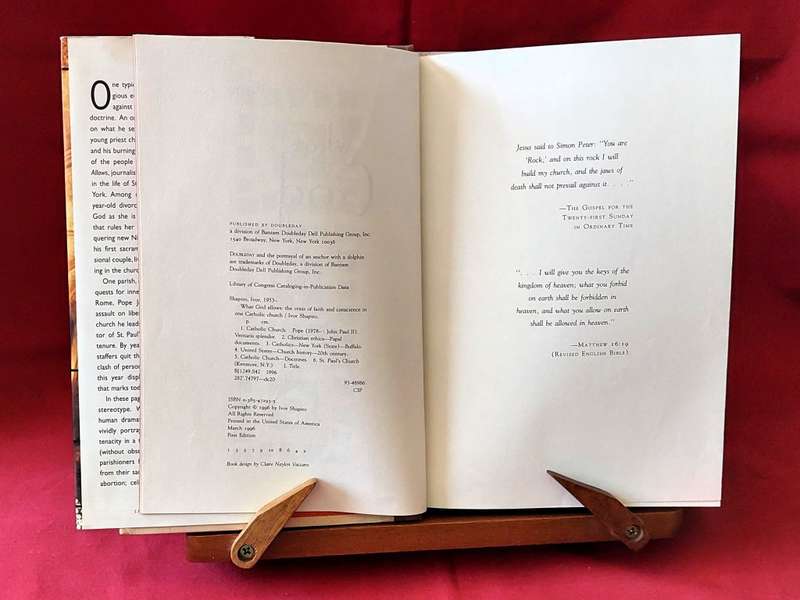 One typi
gious e
against
doctrine. An o
on what he se
young priest ch
and his burning
of the people
Allows, journalis
in the life of S
York. Among
year-old divor
God as she is
that rules her
quering new Ni
his first sacram
sional couple, li
ing in the churc
One parish,
quests for inne
Rome. Pope J
assault on libe
church he lead
tor of St. Paul'
tenure. By yea
staffers quit th
clash of person
this year displ
that marks tod
In these pag
stereotype. W
human drama
vividly portray
tenacity in a
(without obs
parishioners f
from their sa
abortion; celi
PUBLISHED BY DOUBLEDAY
a division of Bantam Doubleday Dell Publishing Group, Inc.
1540 Broadway, New York, New York 10036
DOUBLEDAY and the portrayal of an anchor with a dolphin
are trademarks of Doubleday, a division of Bantam
Doubleday Dell Publishing Group, Inc.
Library of Congress Cataloging-in-Publication Data
Shapiro, Ivor, 1953–
What God allows: the crisis of faith and conscience in
one Catholic church / Ivor Shapiro.
p. cm.
1. Catholic Church. Pope (1978– : John Paul II).
Veritatis splendor. 2. Christian ethics—Papal
documents. 3. Catholics—New York (State)—Buffalo.
4. United States—Church history—20th century.
5. Catholic Church—Doctrines. 6. St. Paul's Church
(Kenmore, N.Y.) I. Title.
BJ1249.S42 1996
282'.74797—dc20
CIP
Copyright © 1996 by Ivor Shapiro
All Rights Reserved
Printed in the United States of America
March 1996
First Edition
1 3 5 7 9 10 8 6 4 2
Book design by Claire Naylon Vaccaro
Jesus said to Simon Peter: "You are
'Rock,' and on this rock I will
build my church, and the jaws of
death shall not prevail against it. . . ."
—The Gospel for the
Twenty-first Sunday
in Ordinary Time
". . . I will give you the keys of the
kingdom of heaven; what you forbid
on earth shall be forbidden in
heaven, and what you allow on earth
shall be allowed in heaven."
—Matthew 16:19
(Revised English Bible)